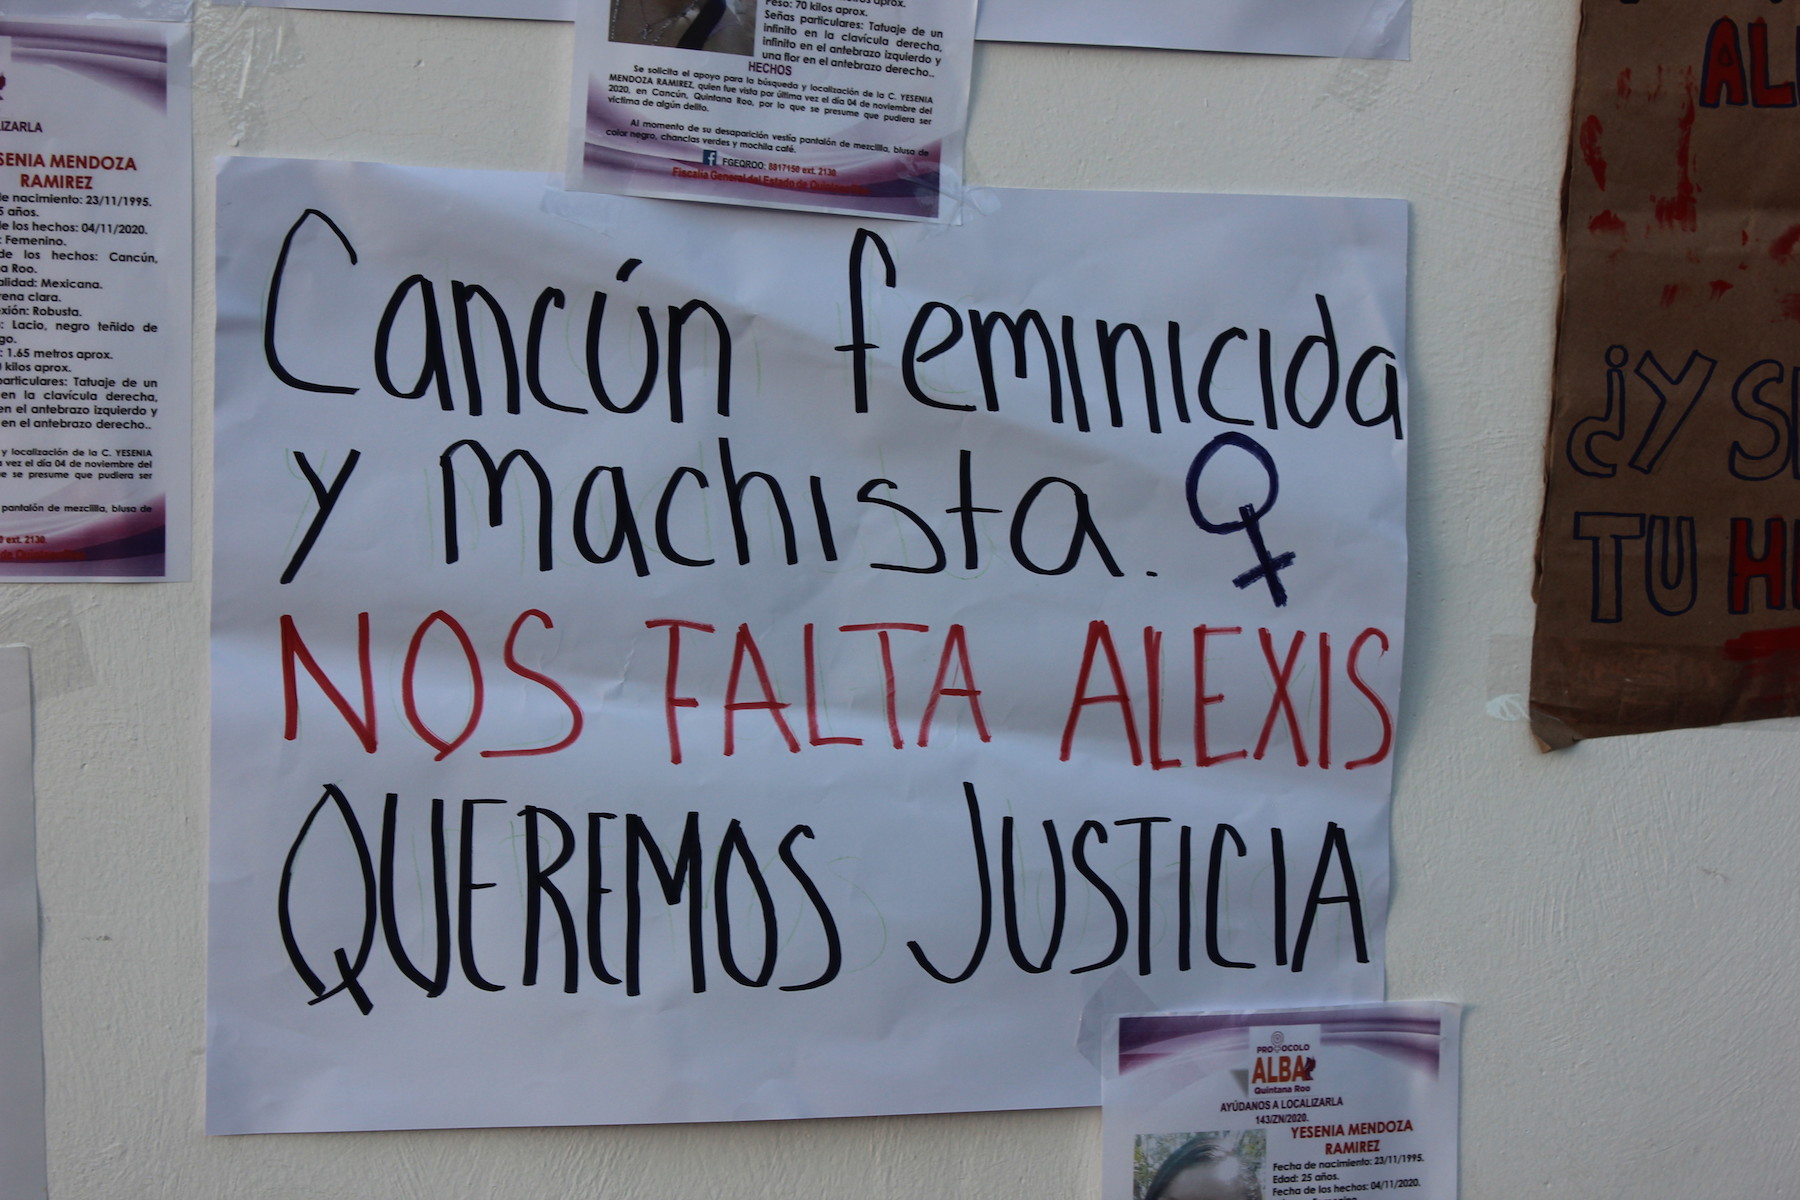 Peso: 70 kilos aprox.
Señas particulares: Tatuaje de un
infinito en la clavícula derecha,
infinito en el antebrazo izquierdo y
una flor en el antebrazo derecho..
HECHOS
Se solicita el apoyo para la búsqueda y localización de la C. YESENIA
MENDOZA RAMIREZ, quien fue vista por última vez el día 04 de noviembre del
2020, en Cancún, Quintana Roo, por lo que se presume que pudiera ser
víctima de algún delito.
Al momento de su desaparición vestía pantalón de mezclilla, blusa de
color negro, chanclas verdes y mochila café.
FGEQRDO: 8817150 ext. 2130
Fiscalía General del Estado de Quintana Roo
IZARLA
SENIA MENDOZA
RAMIREZ
de nacimiento: 23/11/1995.
5 años.
de los hechos: 04/11/2020.
: Femenino.
de los hechos: Cancún,
a Roo.
alidad: Mexicana.
rena clara.
exión: Robusta.
: Lacio, negro teñido de
go.
: 1.65 metros aprox.
kilos aprox.
particulares: Tatuaje de un
en la clavícula derecha,
en el antebrazo izquierdo y
en el antebrazo derecho..
y localización de la C. YESENIA
vez el día 04 de noviembre del
e se presume que pudiera ser
pantalón de mezclilla, blusa de
ext. 2130
Cancún feminicida
y machista. ♀
NOS FALTA ALEXIS
QUEREMOS JUSTICIA
AL
¿Y SI
TU H
PROTOCOLO
ALBA
Quintana Roo
AYÚDANOS A LOCALIZARLA
143/ZN/2020.
YESENIA MENDOZA
RAMIREZ
Fecha de nacimiento: 23/11/1995.
Edad: 25 años.
Fecha de los hechos: 04/11/2020.